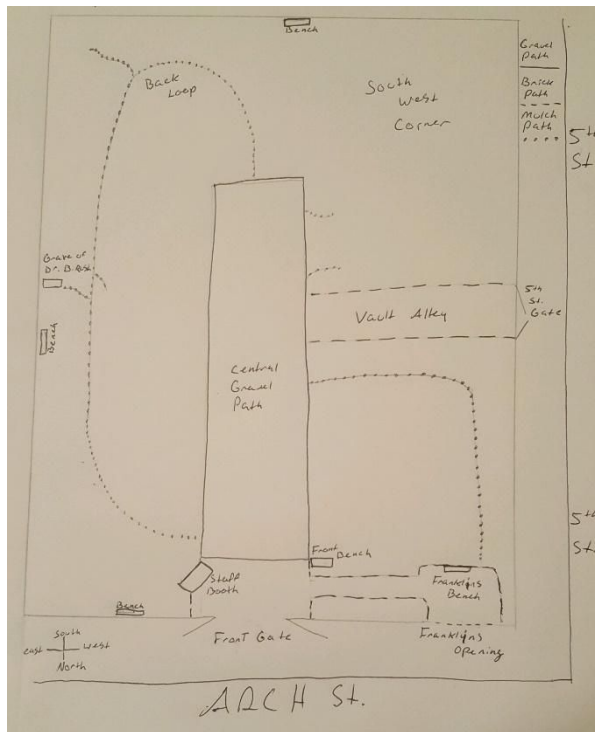 Bench
Gravel
Path
Brick
Path
Mulch
Path
5th
St
Back
Loop
South
West
Corner
Grave of
Dr. B. Rush
Bench
5th
St.
Gate
Vault Alley
Central
Gravel
Path
5th
St
Front
Bench
Staff
Booth
Franklins
Bench
Bench
Front Gate
Franklins
Opening
South
east
west
North
ARCH St.